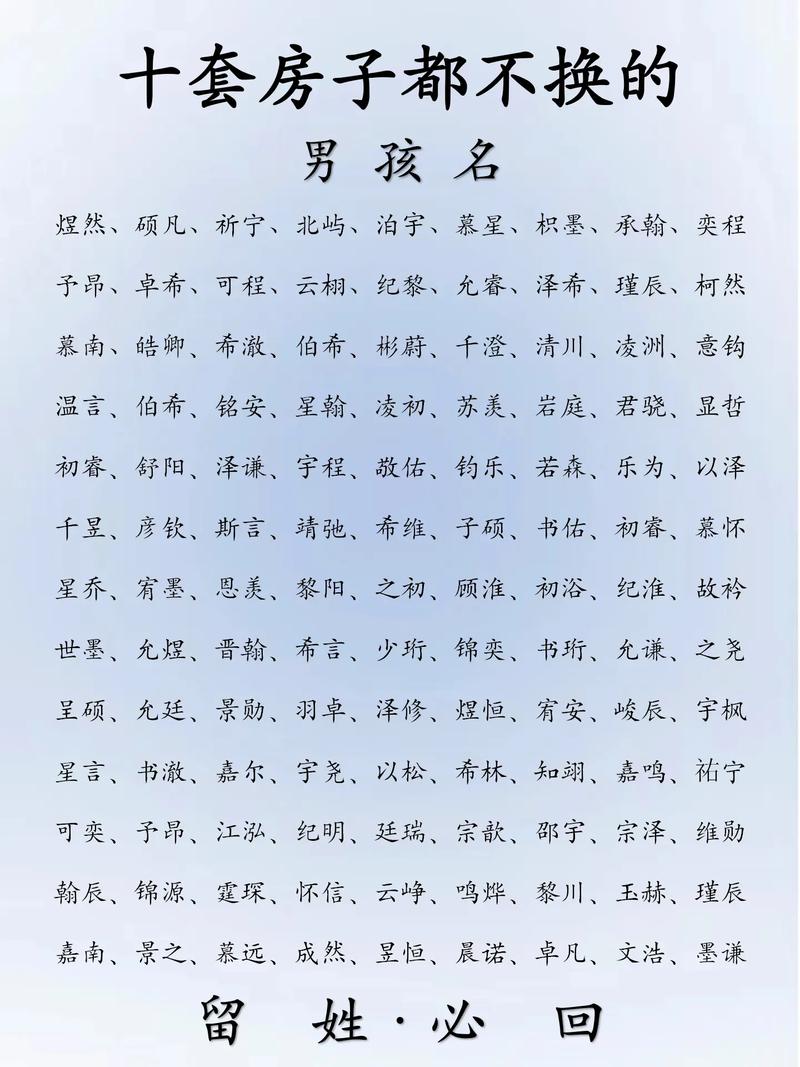 十套房子都不换的
男孩名
煜然、硕凡、祈宁、北屿、泊宇、慕星、枳墨、承翰、奕程
予昂、卓希、可程、云栩、纪黎、允睿、泽希、瑾辰、柯然
慕南、皓卿、希澈、伯希、彬蔚、千澄、清川、凌洲、意钩
温言、伯希、铭安、星翰、凌初、苏羡、岩庭、君骁、显哲
初睿、舒阳、泽谦、宇程、敬佑、钧乐、若森、乐为、以泽
千昱、彦钦、斯言、靖弛、希维、子硕、书佑、初睿、慕怀
星乔、宥墨、恩羡、黎阳、之初、顾淮、初浴、纪淮、故衿
世墨、允煜、晋翰、希言、少珩、锦奕、书珩、允谦、之尧
呈硕、允廷、景勋、羽卓、泽修、煜恒、宥安、峻辰、宇枫
星言、书澈、嘉尔、宇尧、以松、希林、知翊、嘉鸣、祐宁
可奕、予昂、江泓、纪明、廷瑞、宗歆、邵宇、宗泽、维勋
翰辰、锦源、霆琛、怀信、云峥、鸣烨、黎川、玉赫、瑾辰
嘉南、景之、慕远、成然、昱恒、晨诺、卓凡、文浩、墨谦
留姓·必回